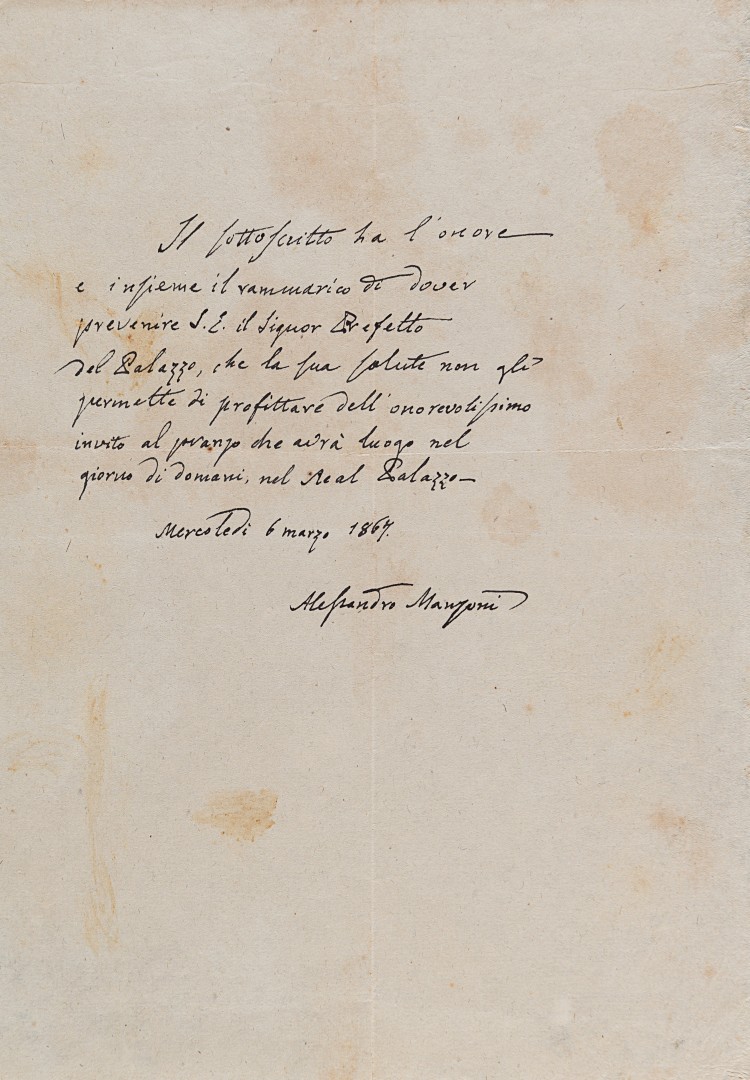 Il sottoscritto ha l'onore
e insieme il rammarico di dover
prevenire S. E. il Signor Prefetto
del Palazzo, che la sua salute non gli
permette di profittare dell'onorevolissimo
invito al pranzo che avrà luogo nel
giorno di domani, nel Real Palazzo
Mercoledì 6 marzo 1867.
Alessandro Manzoni